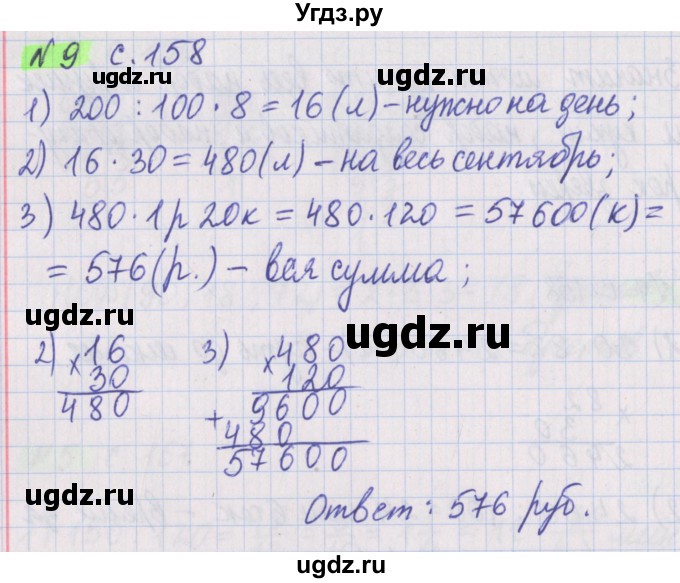 Угдз.ру
№9 с.158
ugdz.ru ugdz.ru
1) 200 : 100 · 8 = 16 (л) – нужно на день;
2) 16 · 30 = 480 (л) – на весь сентябрь;
3) 480 · 1р 20к = 480 · 120 = 57600 (к) =
= 576 (р.) – вся сумма;
ugdz.ru ugdz.ru
2) ×16
30
480
3) ×480
120
9600
+
480
57600
ugdz.ru ugdz.ru
Ответ: 576 руб.
ugdz.ru ugdz.ru